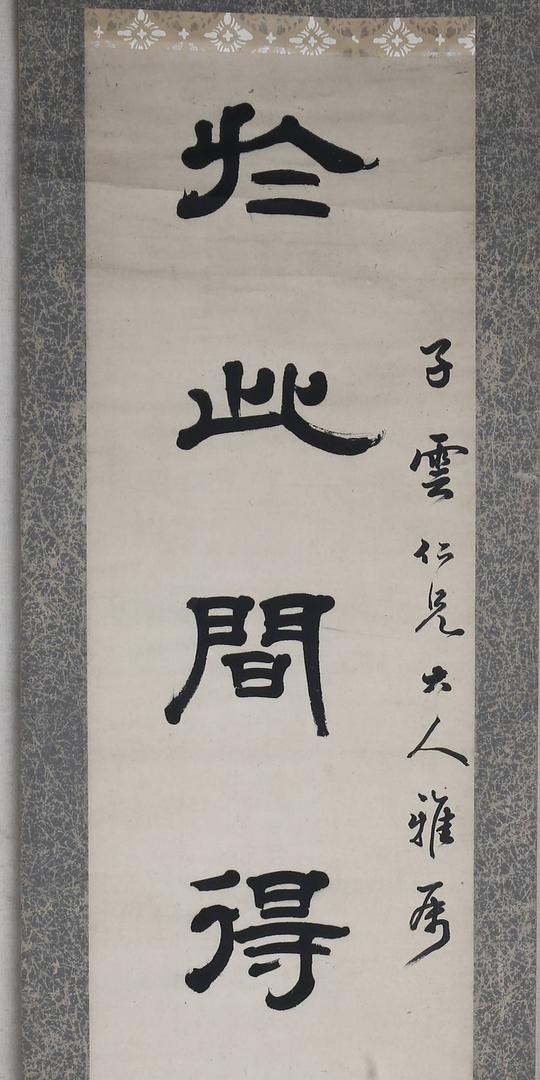 子雲仁兄大人雅屬
於此間得